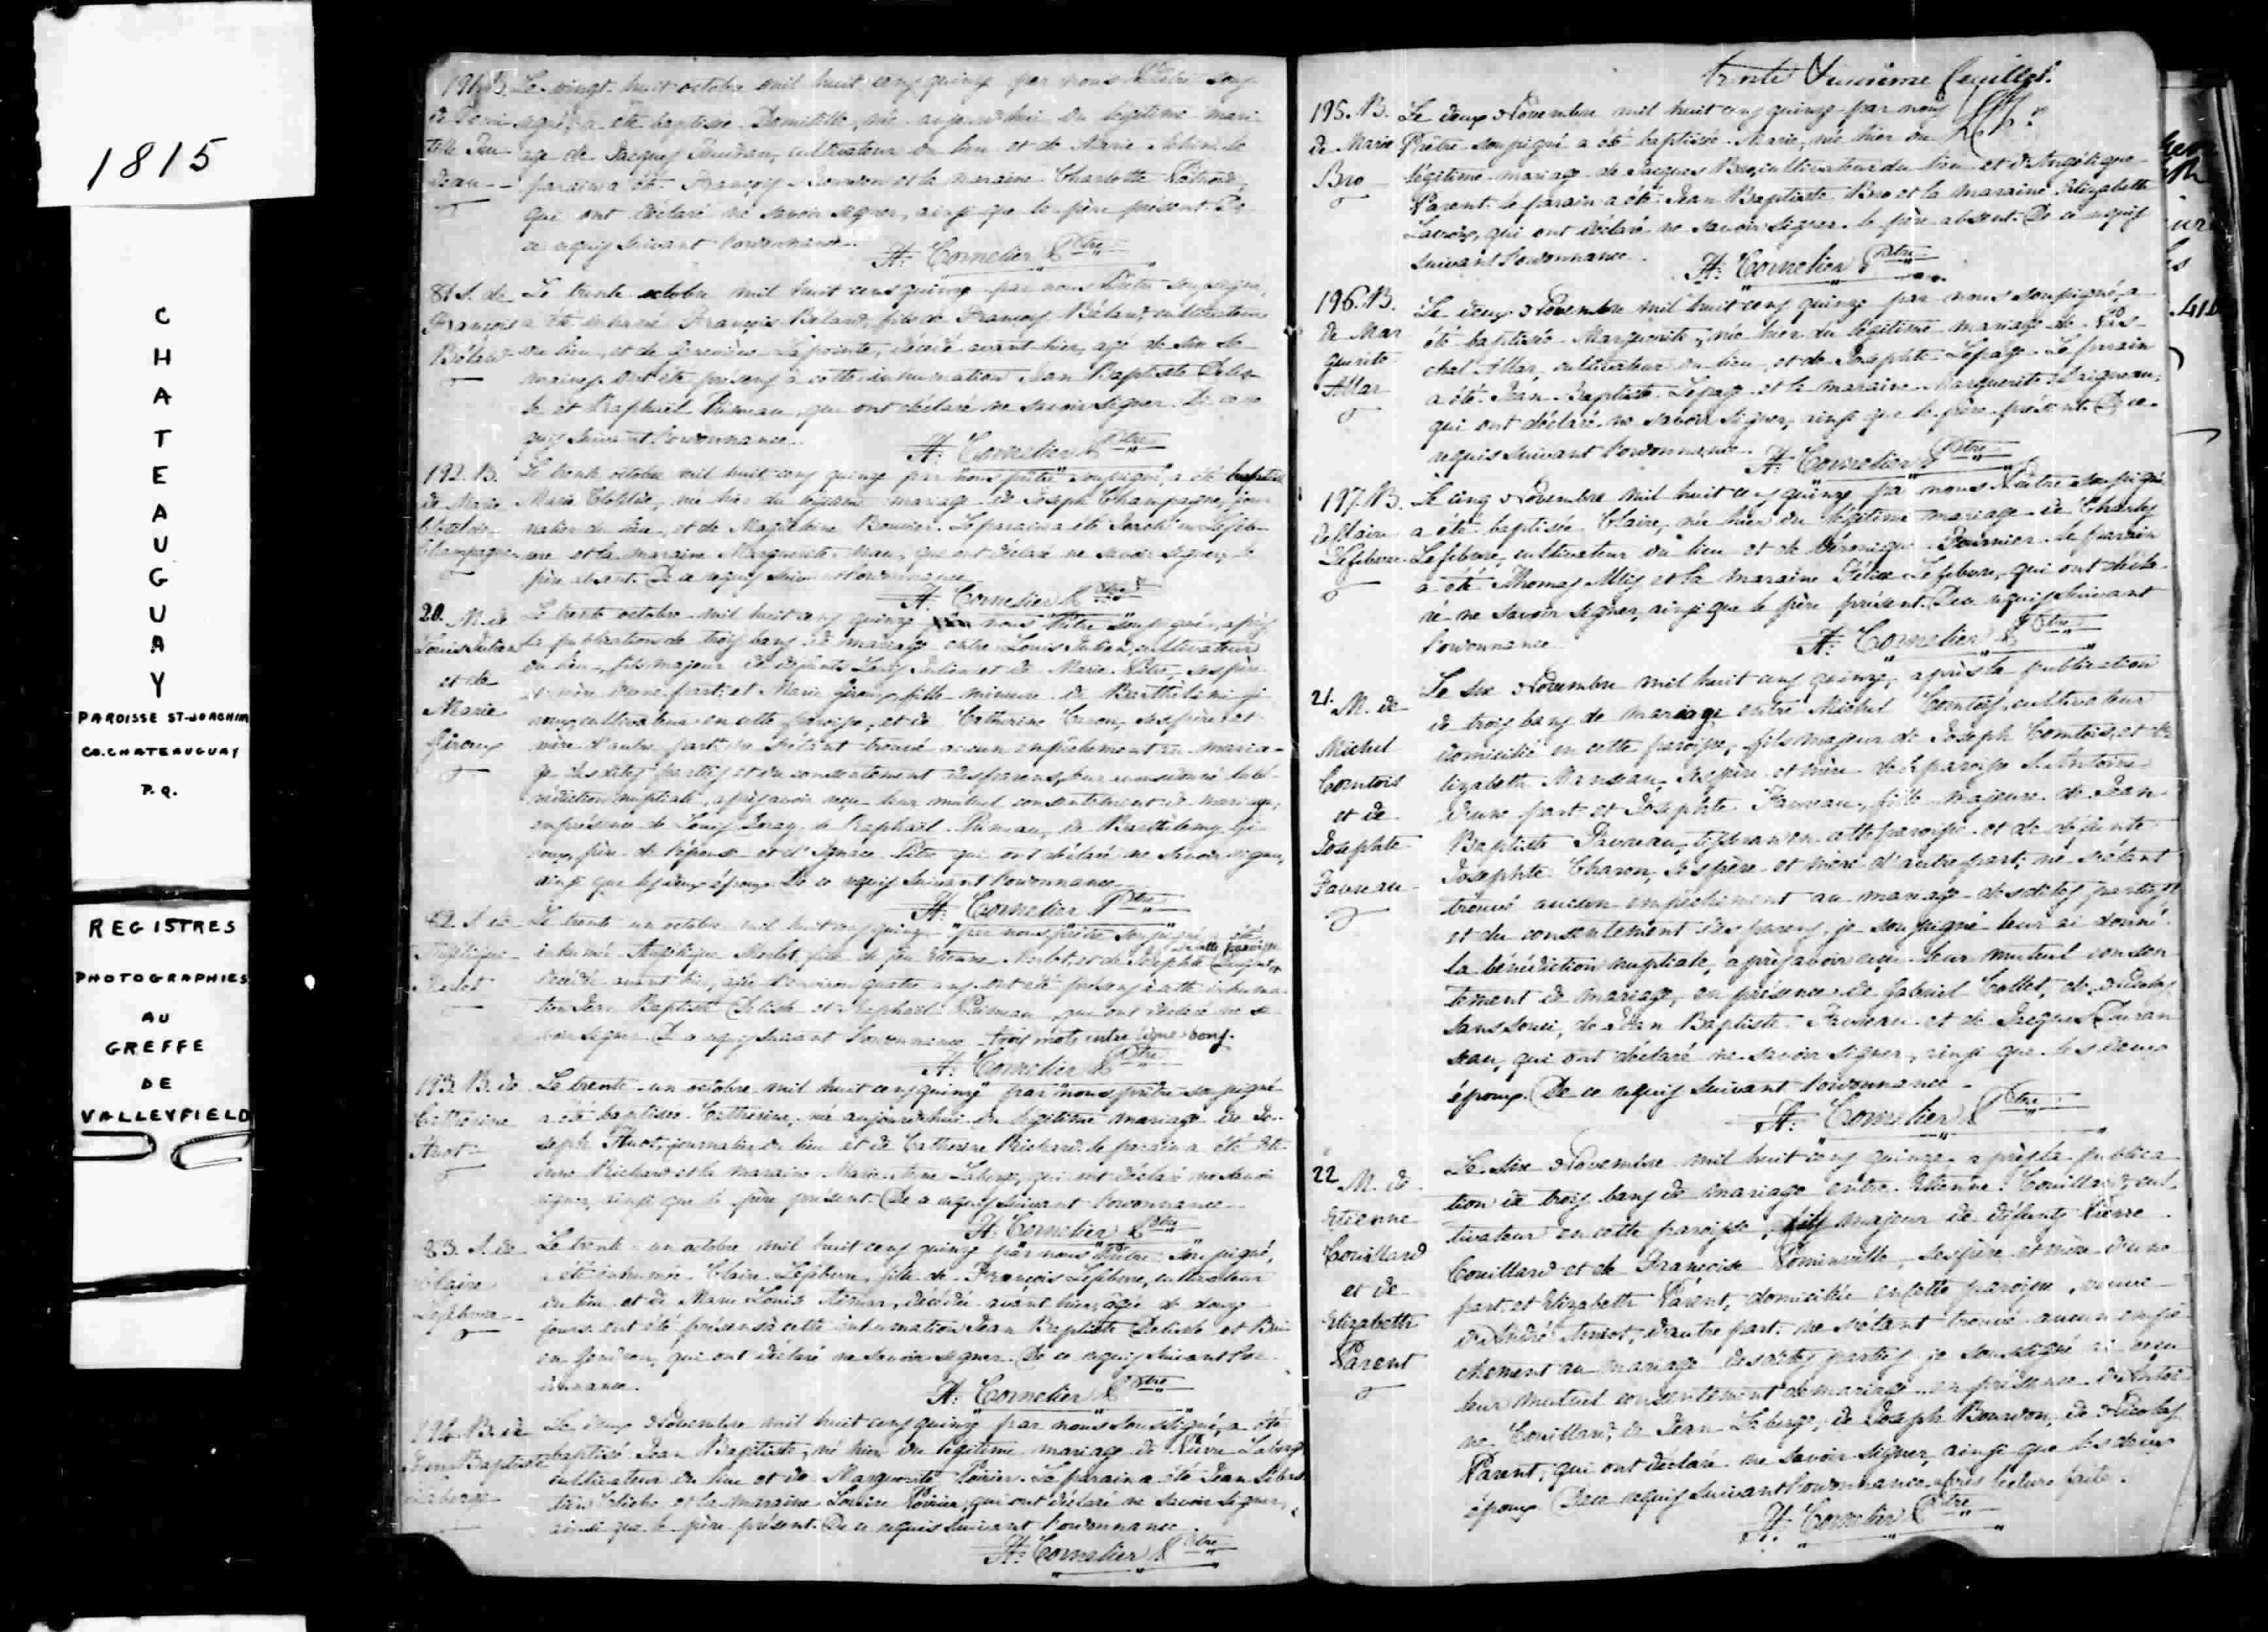 1815
CHATEAUGUAY
PAROISSE ST-JOACHIM
CO. CHATEAUGUAY
P.Q.
REGISTRES
PHOTOGRAPHIES
AU
GREFFE
DE
VALLEYFIELD
Le vingt huit octobre mil huit cens quinze par nous Prêtre sous
signé, a été baptisée Domitille, née aujourd'hui du légitime mari
age de Jacques cultivateur du lieu et de Marie
parain a été François et la maraine Charlotte
qui ont déclaré ne savoir signer, ainsi que le père présent. De
ce requis suivant l'ordonnance.
A: Cornelier Ptre
81 S. de Le trente octobre mil huit cens quinze par nous Prêtre soussigné,
François a été inhumé François Béland, fils de François Béland, cultivateur
Béland du lieu, et de Geneviève Lapointe, décédé avant hier, agé de six se
maines. Ont été présens à cette inhumation Jean Baptiste Delis
le et Raphaël Primeau, qui ont déclaré ne savoir signer. De ce re
quis suivant l'ordonnance.
A: Cornelier Ptre
192. B. Le trente octobre mil huit cens quinze par nous prêtre soussigné, a été baptisée
de Marie Marie née hier du légitime mariage de Joseph Champagne, jour
nalier du lieu, et de Magdeleine Le parain a été Lefeb
Champagne vre et la maraine Marguerite qui ont déclaré ne savoir signer, le
père absent. De ce requis suivant l'ordonnance
A. Cornelier Ptre
20. M. de Le trente octobre mil huit cens quinze nous Prêtre soussigné, après
Louis Julien la publication de trois bans de mariage entre Louis Julien, cultivateur
du lieu, fils majeur de défunts Louis Julien et de Marie ses père
et de et mère d'une part; et Marie Giroux, fille mineure de Barthélemi Gi
Marie roux, cultivateur en cette paroisse, et de Catherine Caron, ses père et
Giroux mère d'autre part; ne s'étant trouvé aucun empêchement au maria-
ge des dites parties et du consentement des parens, leur avons donné la bé
nédiction nuptiale, après avoir reçu leur mutuel consentement de mariage,
en présence de Louis de Raphaël Primeau, de Barthélemy Gi
roux, père de l'épouse et d'Ignace qui ont déclaré ne savoir signer,
ainsi que les deux époux. De ce requis suivant l'ordonnance
A: Cornelier Ptre
82 S. de Le trente un octobre mil huit cens quinze par nous prêtre soussigné, a été
de cette paroisse
Angélique inhumée Angélique fille de feu Etienne et de Josephte
décédée avant hier, agée d'environ quatre ans. Ont été présens à cette inhuma
tion Jean Baptiste Delisle et Raphaël Primeau qui ont déclaré ne sa
voir signer. De ce requis suivant l'ordonnance trois mots entre ligne bons.
A: Cornelier Ptre
193. B. de Le trente-un octobre mil huit cens quinze par nous prêtre soussigné
Catherine a été baptisée Catherine, née aujourd'hui du légitime mariage de Jo-
Huot seph Huot, journalier du lieu et de Catherine Richard. le parain a été Eti
enne Richard et la maraine Marie Laberge, qui ont déclaré ne savoir
signer, ainsi que le père présent. De ce requis suivant l'ordonnance
A: Cornelier Ptre
83. S. de Le trente-un octobre mil huit cens quinze par nous Prêtre soussigné,
Claire a été inhumée Claire Lefebvre, fille de François Lefebvre, cultivateur
Lefebvre du lieu et de Marie Louise décédée avant hier, agée de douze
jours. Ont été présens à cette inhumation Jean Baptiste Delisle et
qui ont déclaré ne savoir signer. De ce requis suivant l'or
donnance.
A: Cornelier Ptre
194. B. de Le deux Novembre mil huit cens quinze par nous soussigné, a été
Jean Baptiste baptisé Jean Baptiste, né hier du légitime mariage de Pierre Laberge
Laberge cultivateur du lieu et de Marguerite Poirier. Le parain a été Jean
et la maraine Louise Poirier, qui ont déclaré ne savoir signer,
ainsi que le père présent. De ce requis suivant l'ordonnance
A: Cornelier Ptre
trente Unieme feuillet.
195. B. Le deux Novembre mil huit cens quinze par nous
de Marie Prêtre soussigné a été baptisée Marie, née hier du
Bro légitime mariage de Jacques Bro, cultivateur du lieu et d'Angélique
Parent. le parain a été Jean Baptiste Bro et la maraine Elizabeth
qui ont déclaré ne savoir signer. le père absent. De ce requis
suivant l'ordonnance.
A: Cornelier Ptre
196. B. Le deux Novembre mil huit cens quinze par nous soussigné, a
de Mar été baptisée Marguerite, née hier du légitime mariage de
guerite Allar, cultivateur du lieu, et de Josephte Lepage. Le parain
Allar a été Jean Baptiste Lepage et la maraine Marguerite
qui ont déclaré ne savoir signer, ainsi que le père présent. De ce
requis suivant l'ordonnance.
A: Cornelier Ptre
197. B. Le cinq Novembre mil huit cens quinze par nous Prêtre soussigné
de Claire a été baptisée Claire, née hier du légitime mariage de Charles
Lefebvre Lefebvre, cultivateur du lieu et de Véronique Fournier. le parain
a été Thomas et la maraine Félice Lefebvre, qui ont décla
ré ne savoir signer, ainsi que le père présent. De ce requis suivant
l'ordonnance
A: Cornelier Ptre
21. M. de Le six Novembre mil huit cens quinze, après la publication
de trois bans de mariage entre Michel Comtois, cultivateur
Michel domicilié en cette paroisse, fils majeur de Joseph Comtois, et d'E
Comtois lizabeth ses père et mère de la paroisse St. Antoine
et de d'une part et Josephte Favreau, fille majeure de Jean
Josephte Baptiste Favreau, tisserand en cette paroisse et de défunte
Favreau Josephte Charon, ses père et mère d'autre part; ne s'étant
trouvé aucun empêchement au mariage des dites parties, et
et du consentement des parens, je soussigné leur ai donné
la bénédiction nuptiale, après avoir reçu leur mutuel consen
tement de mariage, en présence de Gabriel Collet, de Nicolas
Sanssouci, de Jean Baptiste Favreau et de Jacques
qui ont déclaré ne savoir signer, ainsi que les deux
époux. De ce requis suivant l'ordonnance
A: Cornelier Ptre
22 M. de Le six Novembre mil huit cens quinze, après la publica
Etienne tion de trois bans de mariage entre Etienne Couillard, cul
Couillard tivateur en cette paroisse, fils majeur de défunts Pierre
et de Couillard et de Françoise ses père et mère d'une
Elizabeth part et Elizabeth Parent, domiciliée en cette paroisse, veuve
Parent d'André d'autre part; ne s'étant trouvé aucun empê
chement au mariage des dites parties, je soussigné ai reçu
leur mutuel consentement de mariage en présence d'Antoi
ne Couillard, de Jean Laberge, de Joseph Bourdon, de Nicolas
Parent, qui ont déclaré ne savoir signer, ainsi que les deux
époux. De ce requis suivant l'ordonnance, après lecture faite.
A: Cornelier Ptre